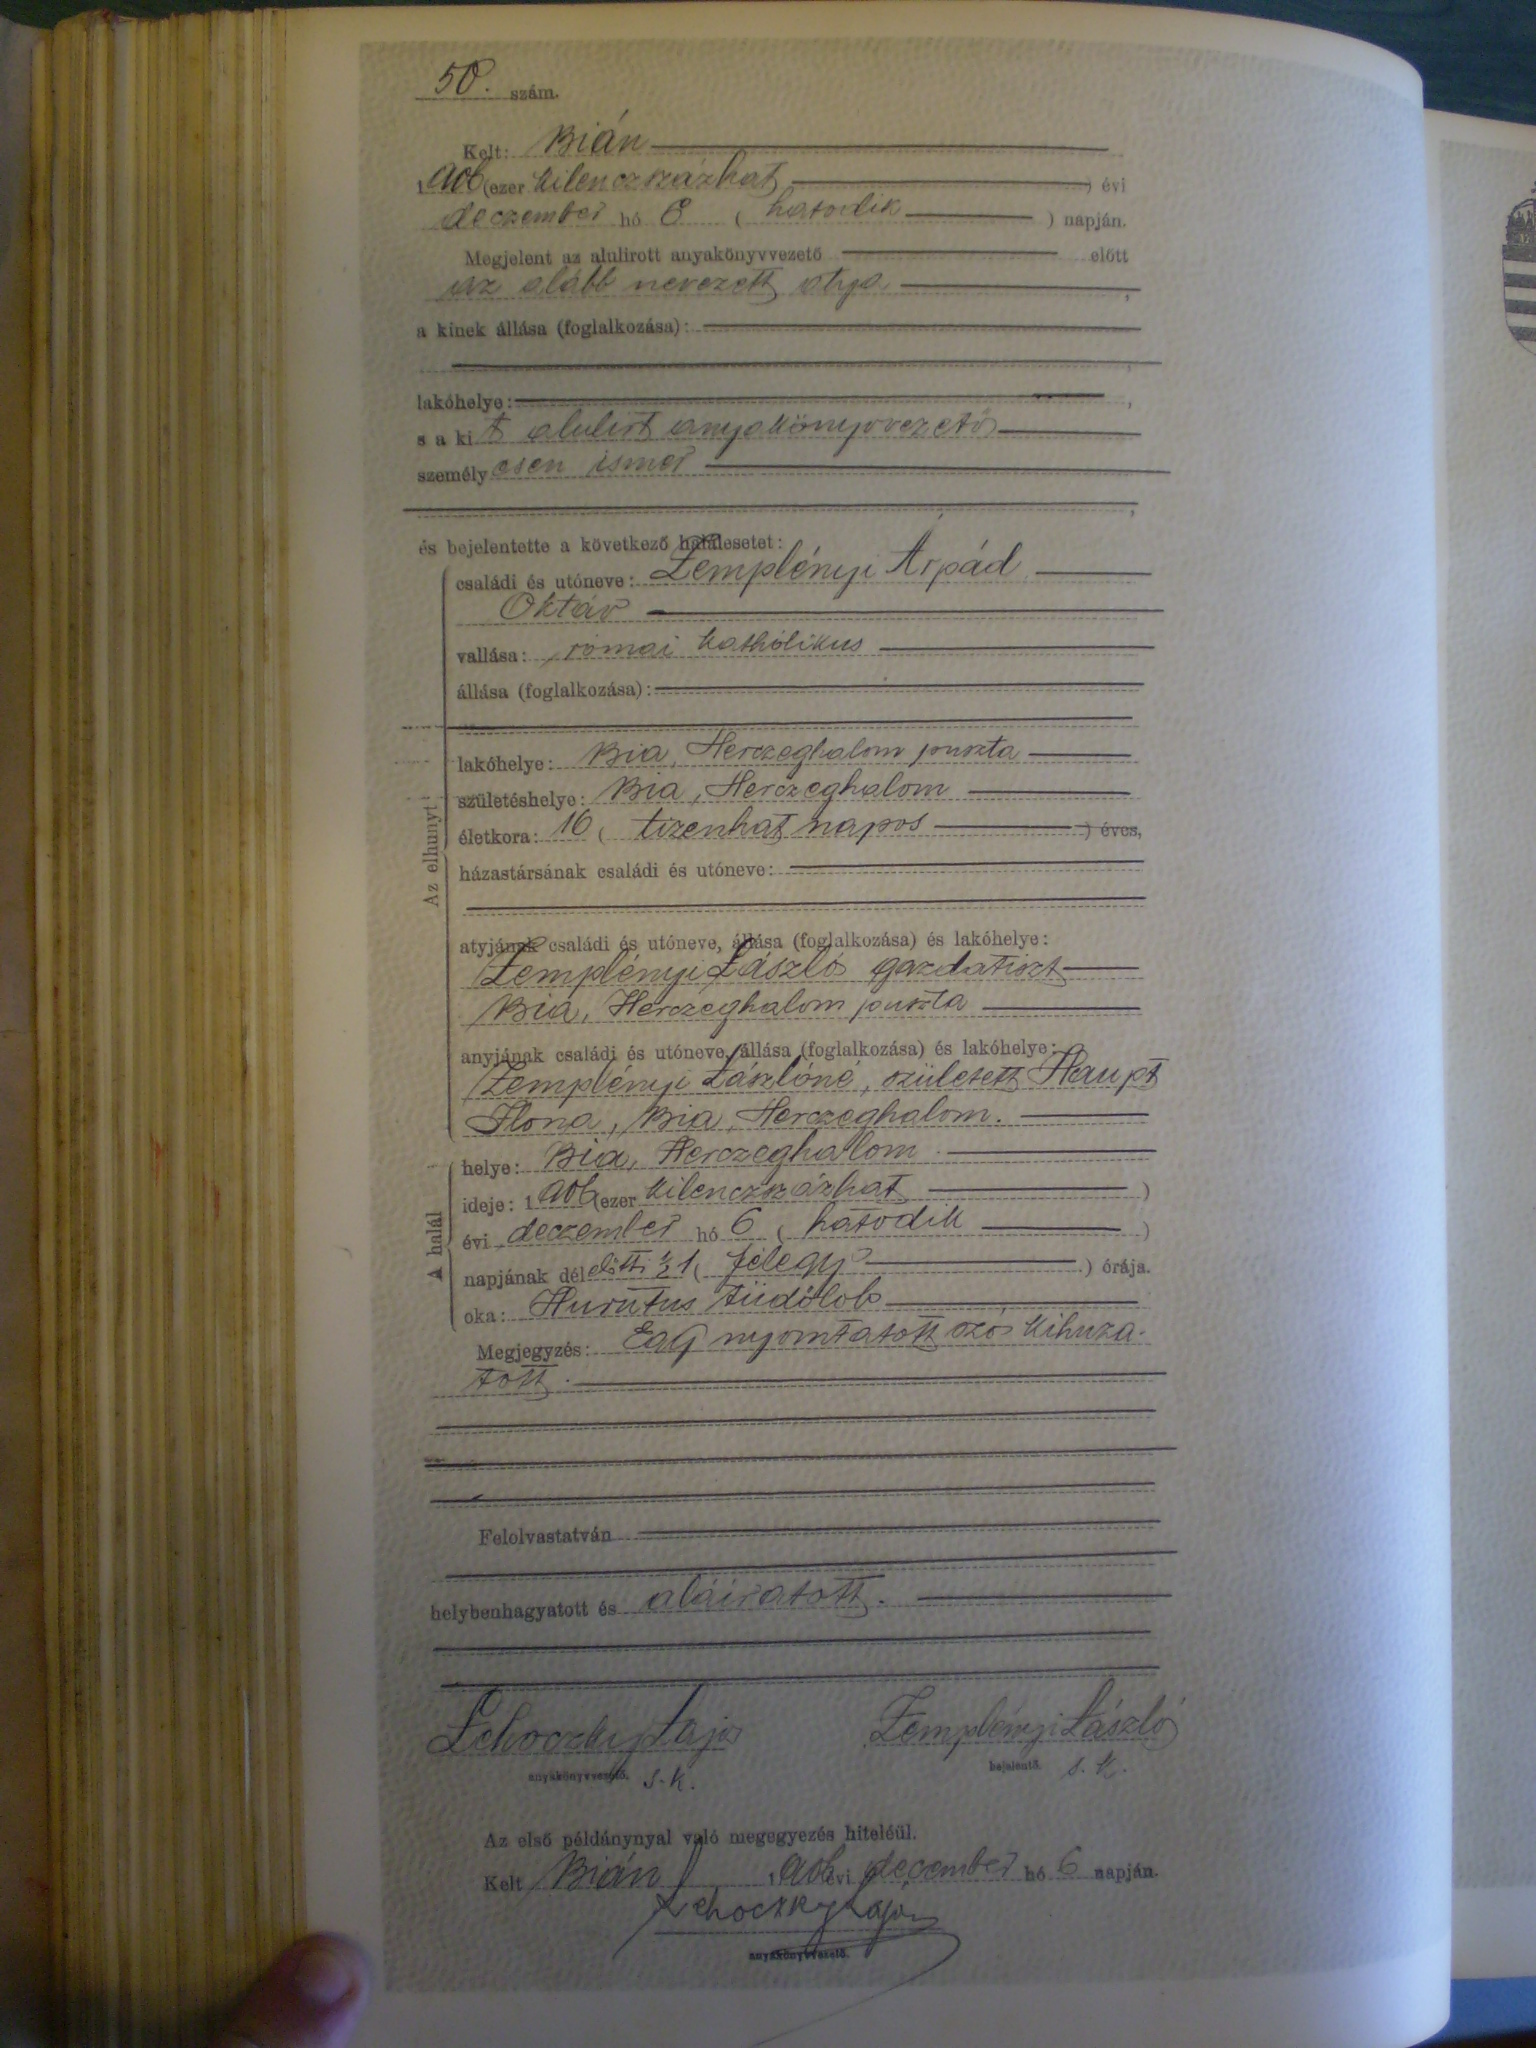 50. szám.
Kelt: Bián
1906 (ezer kilenczszázhat ) évi
deczember hó 6 ( hatodik ) napján.
Megjelent az alulirott anyakönyvvezető előtt
az alább nevezett atya,
a kinek állása (foglalkozása):
lakóhelye: ,
s a kit alulirt anyakönyvvezető
személyesen ismer
és bejelentette a következő halálesetet:
Az elhunyt
családi és utóneve: Zemplényi Árpád
Oktáv
vallása: római katholikus
állása (foglalkozása):
lakóhelye: Bia, Herczeghalom puszta
születéshelye: Bia, Herczeghalom
életkora: 16 ( tizenhat napos ) éves,
házastársának családi és utóneve:
atyjának családi és utóneve, állása (foglalkozása) és lakóhelye:
Zemplényi László gazdatiszt
Bia, Herczeghalom puszta
anyjának családi és utóneve, állása (foglalkozása) és lakóhelye:
Zemplényi Lászlóné, született Haupt
Ilona, Bia, Herczeghalom.
A halál
helye: Bia, Herczeghalom
ideje: 1906 (ezer kilenczszázhat )
évi deczember hó 6 ( hatodik )
napjának délelőtti ½1 ( félegy ) órája.
oka: Hurutus tüdőlob
Megjegyzés: Egy nyomtatott szó kihuza-
tott.
Felolvastatván
helybenhagyatott és aláiratott.
Lajos Zemplényi László
anyakönyvvezető. s.k. bejelentő. s.k.
Az első példánynyal való megegyezés hiteléül.
Kelt Bián 1906 évi december hó 6 napján.
Lajos
anyakönyvvezető.